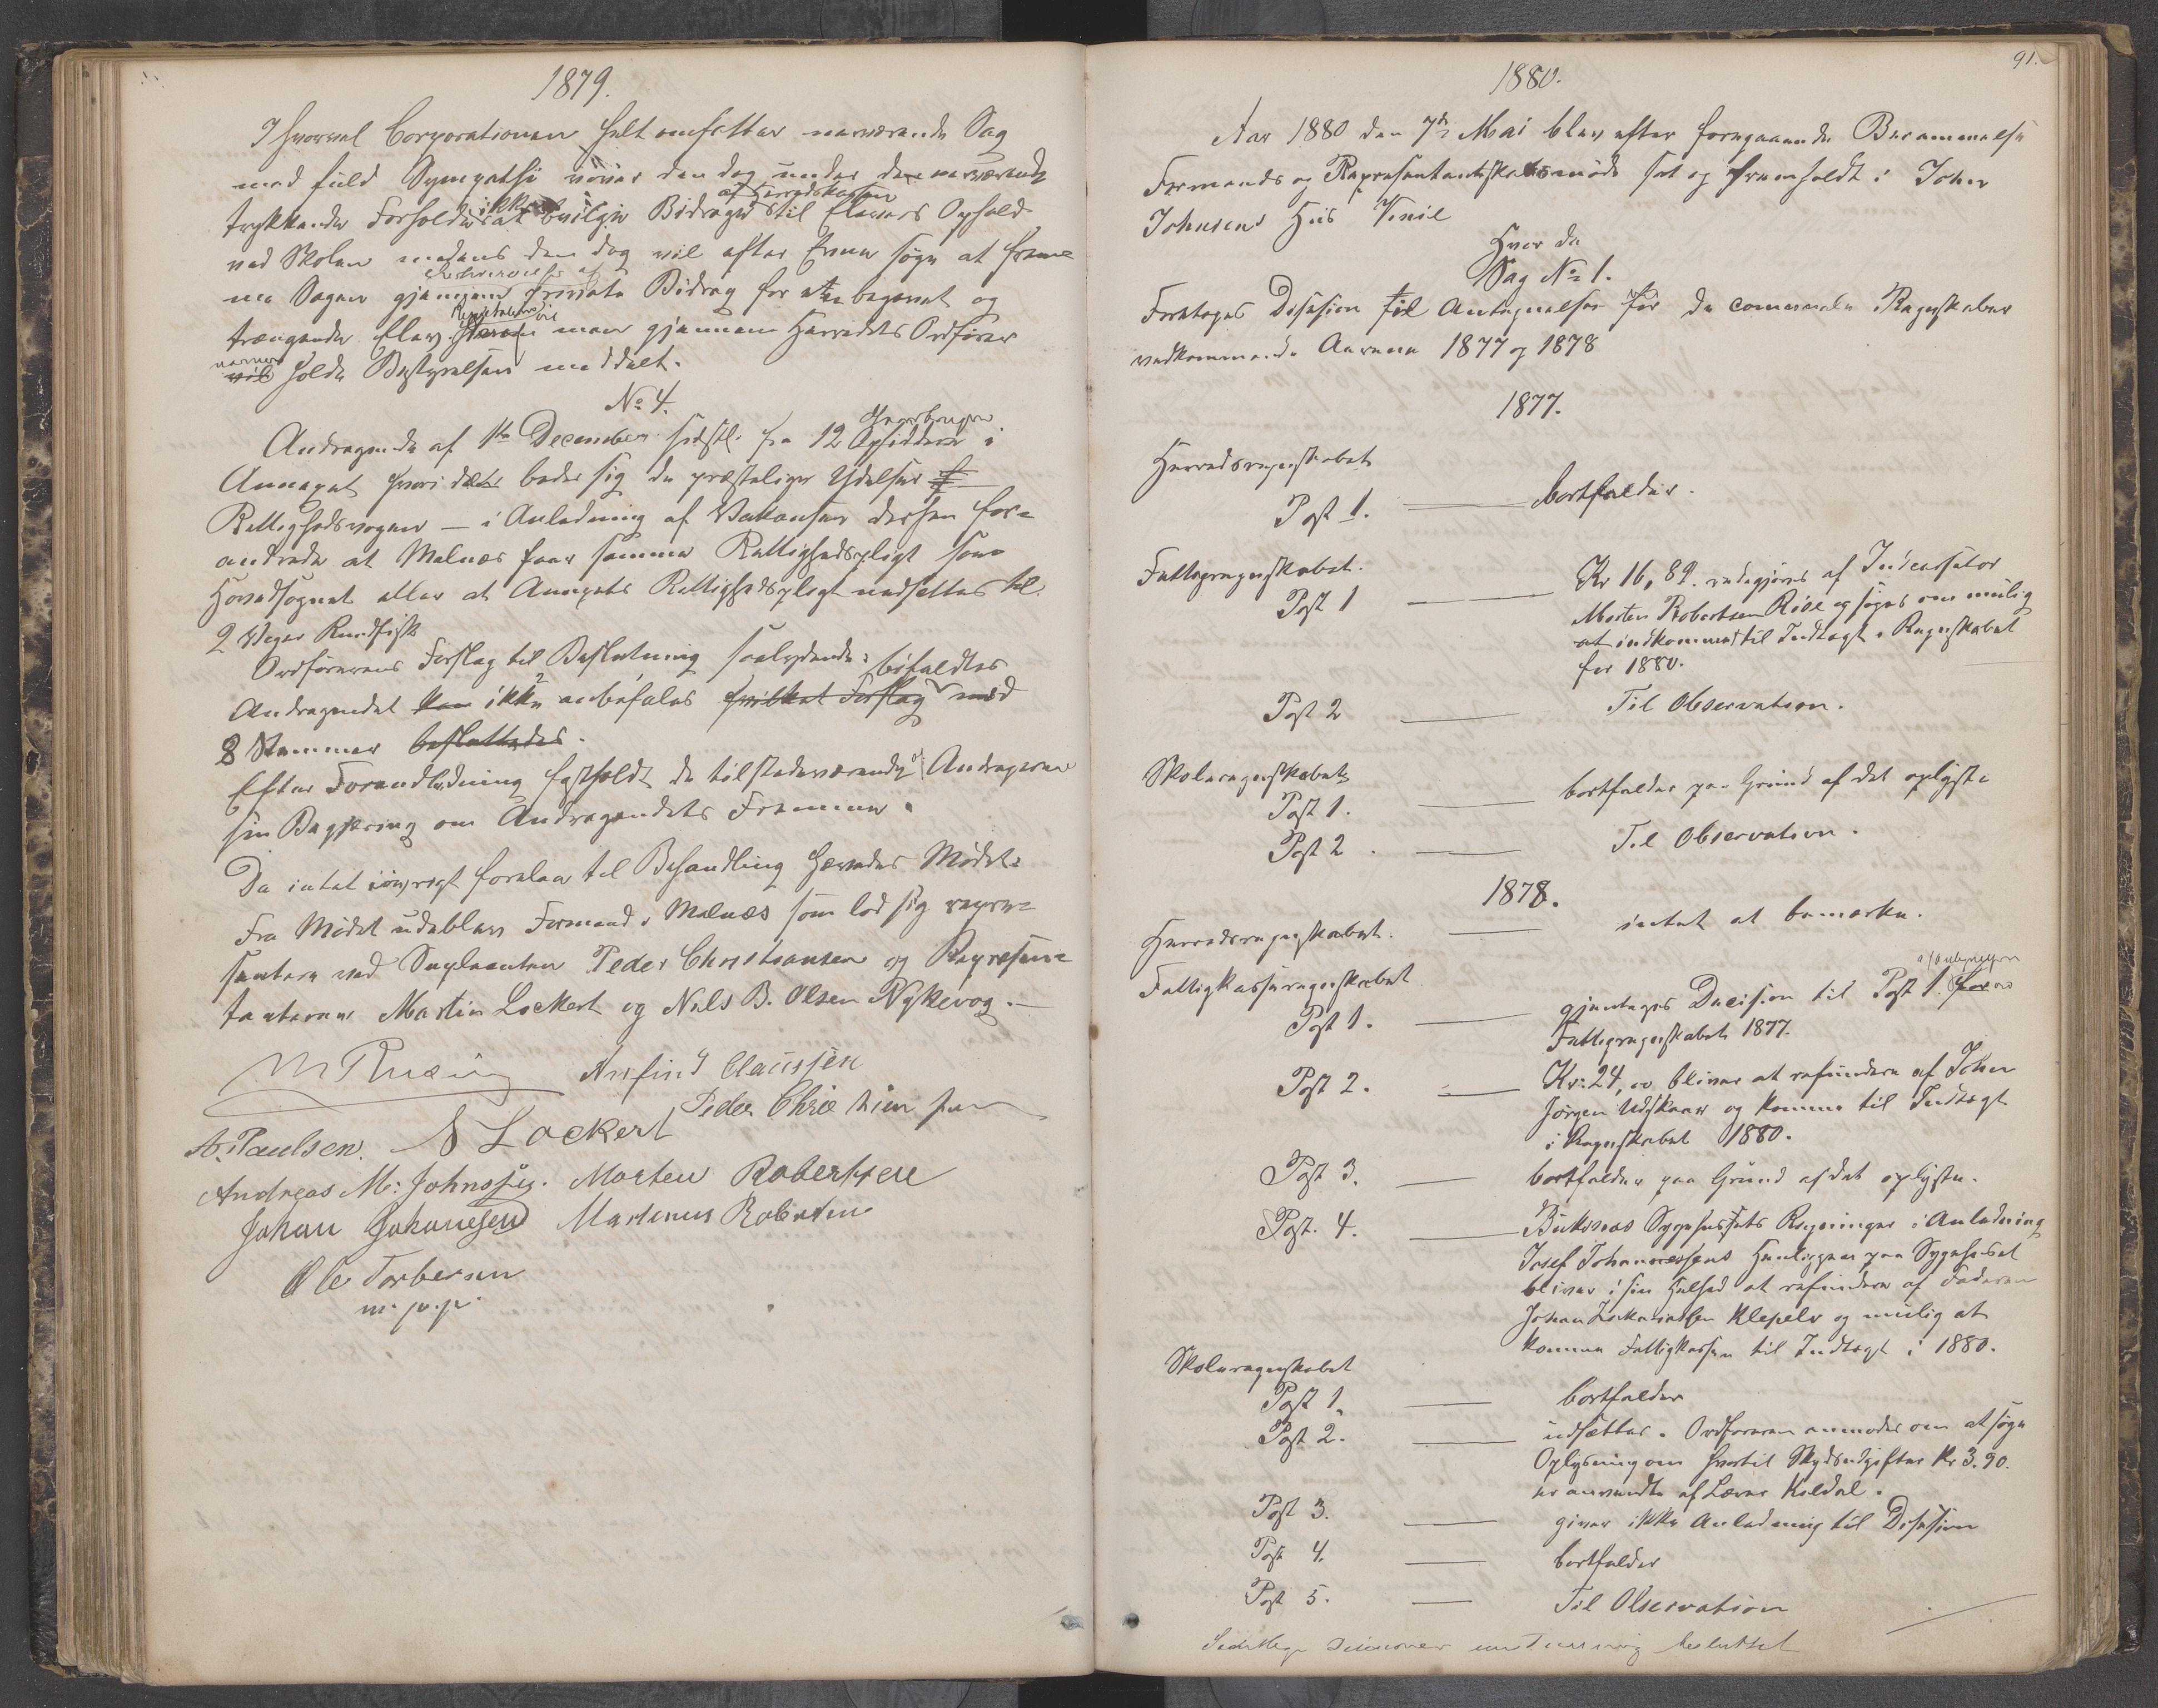 1879.
Ihvorvel Corporationen helt omfatter nærværende Sag
med fuld Sympathi vover den dog under de nærværende
trykkende Forholde ikke at bevilge Bidraget af Herredskassen til Elevers Ophold
ved Skolen medens den dog vil efter Evne søge at frem-
me Sagen gjennem private Bidrag for en begavet og
trængende Elev. Resultatet vil man gjennem Herredets Ordfører
holde Bestyrelsen meddelt.
No 4.
Andragende af 1ste December sidstl. fra 12 Opsiddere i
Annexet hvori de beder sig de præstelige Ydelser
Rettighedsvogen — i Anledning af Vakansen derhen for-
andrede at Malnæs faar samme Rettighedspligt som
Hovedsognet eller at Annexets Rettighedspligt nedsættes til
2 Voger Rundfisk
Ordførerens Forslag til Beslutning saalydende:
Andragendet kan ikke anbefales hvilket Forslag bifaldtes med
8 Stemmer besluttedes.
Efter Foranledning fastholdt de tilstedeværende af Andragerne
sin Begjæring om Andragendets Fremme.
Da intet iøvrigt forelaa til Behandling hævedes Mødet.
Fra Mødet udeblev Formand i Malnæs som lod sig repræ-
sentere ved Supleanten Peder Christiansen og Repræsen-
tanterne Martin Lockert og Nils B. Olsen Nykevog.—
Arnfind Claussen
A. Paulsen. Lockert Peder Christiansen
Andreas M: Johnsen. Morten Robertsen
Johan Johannesen Martinus Robertsen
Ole Torbersen
m. p. p.
91.
1880.
Aar 1880 den 7de Mai blev efter foregaaende Berammelse
Formands og Repræsentantskabsmøde sat og fremholdt i John
Johnsens Huus Vinie
Hvor da
Sag No 1.
Foretoges Desision til Antegnelser for de communale Regnskaber
vedkommende Aarene 1877 og 1878
1877.
Herredsregnskabet
Post 1. — bortfalder.
Fattigregnskabet.
Post 1 — Kr 16,89. redegjøres af Indcassator
Morten Robertsen Rise og søges om mulig
at indkomme til Indtægt i Regnskabet
for 1880.
Post 2 — Til Observation.
Skoleregnskabet
Post 1. — bortfalder paa Grund af det oplyste
Post 2 — Til Observation.
1878.
Herredsregnskabet. — intet at bemærke.
Fattigkasseregnskabet
Post 1. — gjentages Decision til Post 1. i Antegnelsen
Fattigregnskabet 1877.
Post 2. — Kr: 24,00 bliver at refundere af John
Jørgen Udskaar og komme til Indtægt
i Regnskabet 1880.
Post 3. — bortfalder paa Grund af det oplyste.
Post. 4. — Buksnæs Sygehusets Regninger i Anledning
Josef Johannessens Henliggen paa Sygehuset
bliver i sin Helhed at refundere af Faderen
Johan Klepelv og mulig at
komme Fattigkassen til Indtægt i 1880.
Skoleregnskabet
Post 1. — bortfalder
Post 2. — udsættes. Ordføreren anmodes om at søge
Oplysning om hvortil Skydsudgifter Kr 3.90.
er anvendte af Lærer Kildal.
Post 3. — giver ikke Anledning til Desision
Post 4. — bortfalder
Post 5. — Til Observation
besluttet